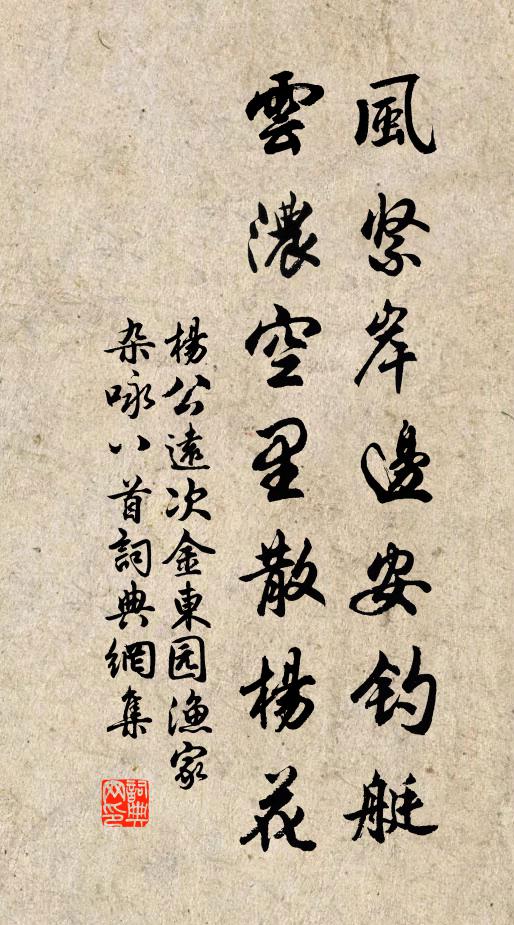 風緊岸邊安釣艇
雲濃空里散楊花
楊公遠次金東园漁家
杂咏八首詞典網集
詞典网印